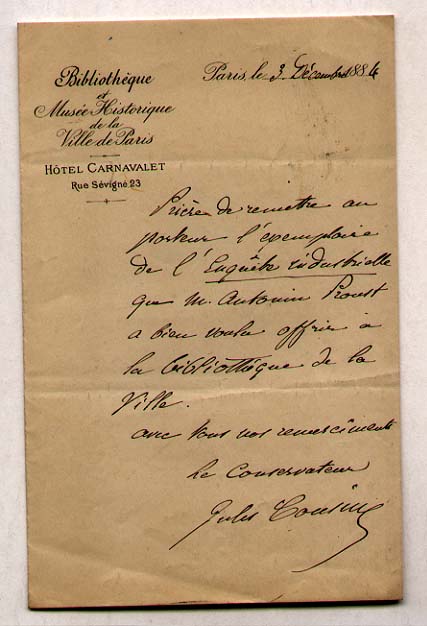 Bibliothèque
et
Musée Historique
de la
Ville de Paris
HÔTEL CARNAVALET
Rue Sévigné 23
Paris, le 3 Décembre 1884
Prière de remettre au
porteur l'exemplaire
de l'Enquête industrielle
que M. Antonin Proust
a bien voulu offrir à
la bibliothèque de la
Ville.
avec tous nos remerciments
le Conservateur
Jules Cousin